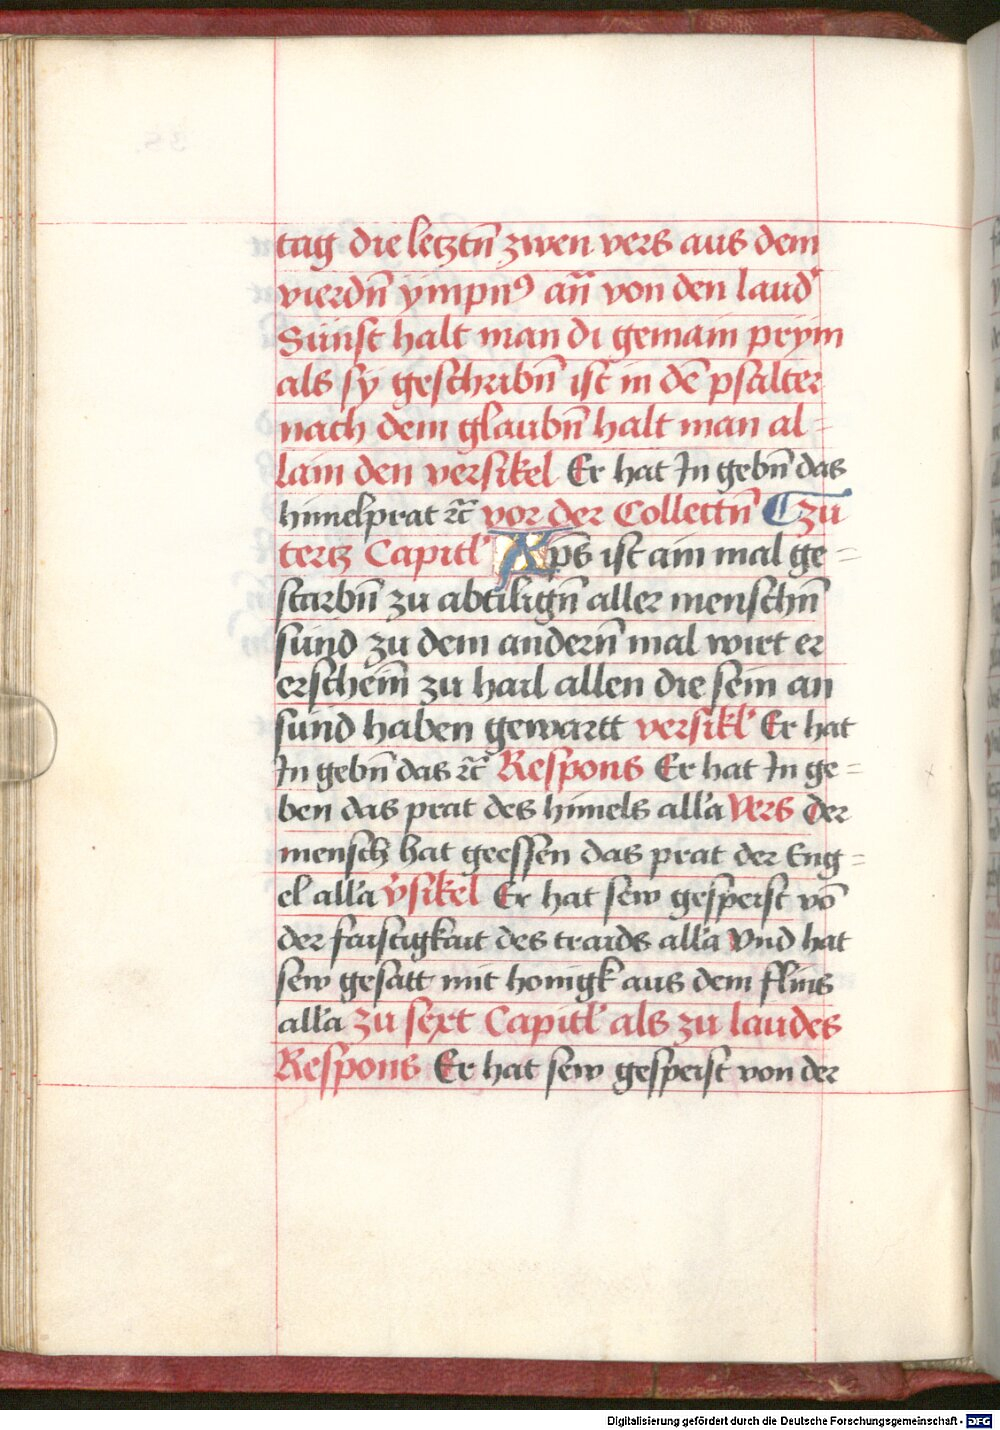 tag die letztn̄ zwen vers aus dem
vierdn̄ ympnꝰ an̄ von den laud'
Sünst halt man di gemain preym
als sy geschribn̄ ist in dē psalter
nach dem glaubn̄ halt man al=
lain den versikel Er hat In gebn̄ das
himelprat ⁊c̄ vor der Collectn̄ C zu
tertz Capitl' Xp̄s ist ain mal ge=
starbn̄ zu abtilign̄ aller menschn̄
sünd zu dem andern̄ mal wirt er
erschein̄ zu hail allen die sein an
sünd haben gewartt versikl' Er hat
In gebn̄ das ⁊c̄ Respons Er hat In ge=
ben das prat des himels all'a Vers Der
mensch hat geessen das prat der Eng=
el all'a v̄sikel Er hat sew gespeist vō
der faistigkait des traids all'a Vnd hat
sew gesatt mit honigk aus dem flins
all'a zu sext Capitl' als zu laudes
Respons Er hat sew gespeist von der
Digitalisierung gefördert durch die Deutsche Forschungsgemeinschaft - DFG